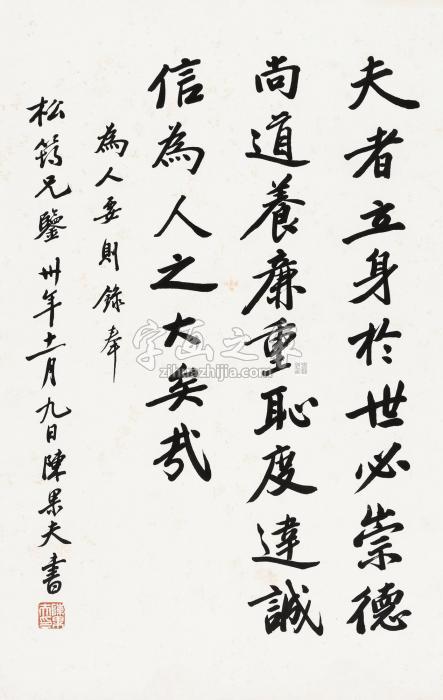 夫者立身於世必崇德
尚道養廉重恥度達誠
信為人之大矣哉
為人要則錄奉
松筠兄鑒 卅年十一月九日陳果夫書
字画之家
zihuazhijia.com